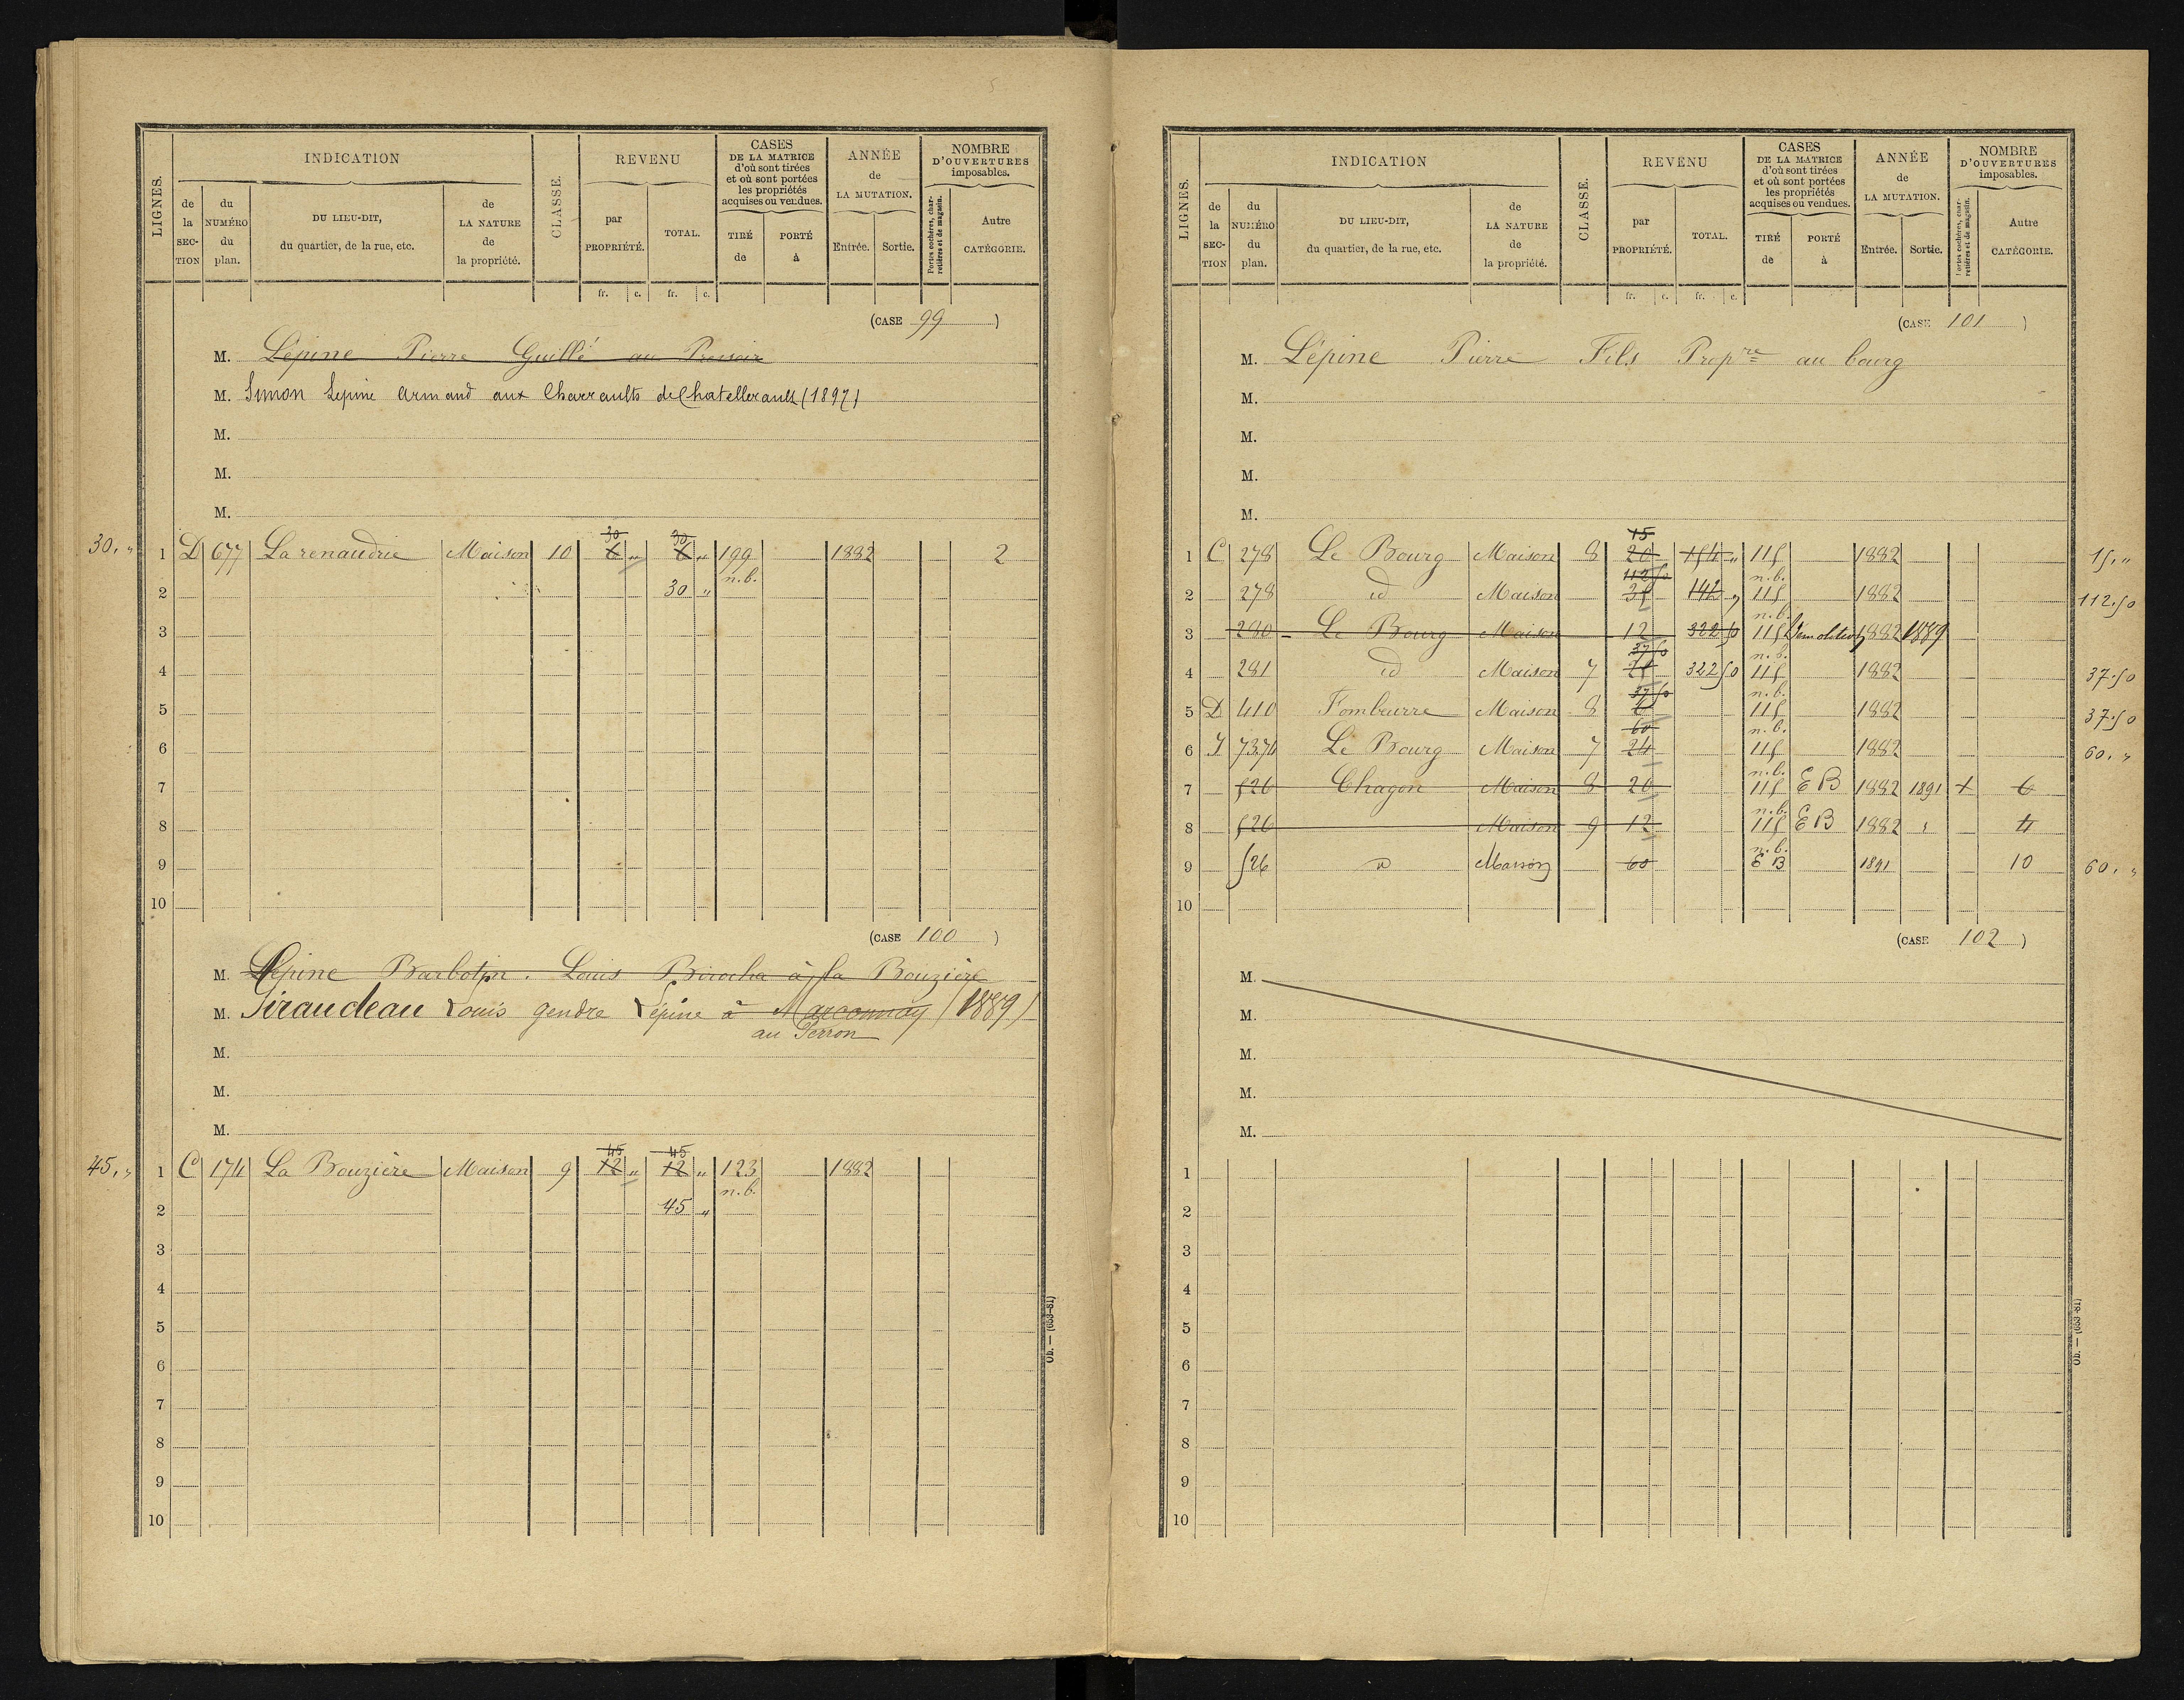 5
LIGNES.
INDICATION
de la SECTION
du NUMÉRO du plan.
DU LIEU-DIT, du quartier, de la rue, etc.
de LA NATURE de la propriété.
CLASSE.
REVENU
par PROPRIÉTÉ.
TOTAL.
CASES DE LA MATRICE d'où sont tirées et où sont portées les propriétés acquises ou vendues.
TIRÉ de
PORTÉ à
ANNÉE de LA MUTATION.
Entrée.
Sortie.
NOMBRE D'OUVERTURES imposables.
Portes cochères, charretières et de magasin.
Autre CATÉGORIE.
fr. c. fr. c.
(CASE 99)
M. Lépine Pierre Guillé au Pressoir
M. Simon Lepine Armand aux Charraults de Chatellerault (1897)
M.
M.
M.
30
30
30. " 1 D 677 La renaudrie Maison 10 6 " 6 " 199 1882 2
n.b.
2 30 "
3
4
5
6
7
8
9
10
(CASE 100)
M. Lépine Barbotin. Louis à la Bouzière
M. Giraudeau Louis gendre Lépine à Marconnay (1889)
au Perron
M.
M.
M.
45 45
45. " 1 C 174 La Bouzière Maison 9 12 " 12 " 123 1882
n.b.
2 45 "
3
4
5
6
7
8
9
10
Ob. — (653-81)
LIGNES.
INDICATION
de la SECTION
du NUMÉRO du plan.
DU LIEU-DIT, du quartier, de la rue, etc.
de LA NATURE de la propriété.
CLASSE.
REVENU
par PROPRIÉTÉ.
TOTAL.
CASES DE LA MATRICE d'où sont tirées et où sont portées les propriétés acquises ou vendues.
TIRÉ de
PORTÉ à
ANNÉE de LA MUTATION.
Entrée.
Sortie.
NOMBRE D'OUVERTURES imposables.
Portes cochères, charretières et de magasin.
Autre CATÉGORIE.
fr. c. fr. c.
(CASE 101)
M. Lépine Pierre Fils Propre au bourg
M.
M.
M.
M.
15
1 C 278 Le Bourg Maison 8 20 154 " 115 1882 15. "
112 50 n.b.
2 278 id Maison 35 142 " 115 1882 112.50
n.b.
3 280 Le Bourg Maison 12 322 50 115 Démolition 1882 1889
37 50 n.b.
4 281 id Maison 7 322 50 115 1882 37.50
37 50 n.b.
5 D 410 Fombeurre Maison 8 6 115 1882 37.50
60 n.b.
6 I 73.74 Le Bourg Maison 7 24 115 1882 60. "
n.b.
7 526 Chagon Maison 8 20 115 E B 1882 1891 + 6
n.b.
8 526 Maison 9 12 115 E B 1882 " 4
n.b.
9 526 d Maison 60 E B 1891 10 60. "
10
(CASE 102)
M.
M.
M.
M.
M.
1
2
3
4
5
6
7
8
9
10
Ob. — (653-81)